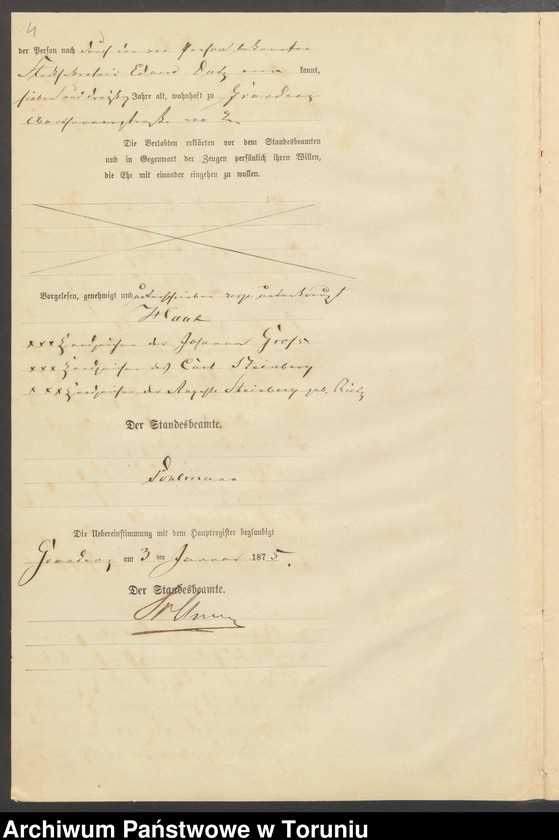 4
der Person nach durch den von Person bekannten
Stadtsekretair Eduard kannt,
sieben und dreißig Jahre alt, wohnhaft zu Graudenz
no 2.
Die Verlobten erklärten vor dem Standesbeamten
und in Gegenwart der Zeugen persönlich ihren Willen,
die Ehe mit einander eingehen zu wollen.
Vorgelesen, genehmigt und unterschrieben resp. unterkreuzt
Haak
xxx Handzeichen der Johanna Groß
xxx Handzeichen des Carl Steinberg
xxx Handzeichen der Auguste Steinberg geb.
Der Standesbeamte.
Pohlmann
Die Uebereinstimmung mit dem Hauptregister beglaubigt
Graudenz am 3 ten Januar 1875.
Der Standesbeamte.
Archiwum Państwowe w Toruniu